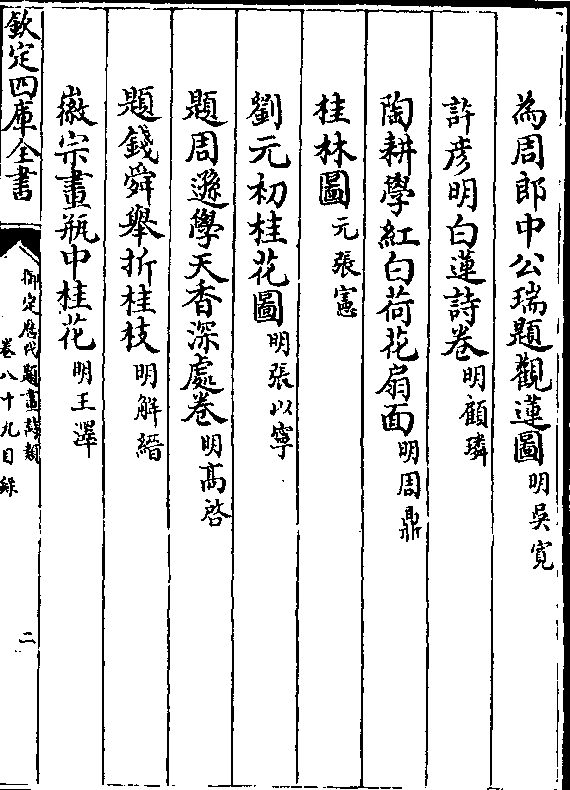 為周郎中公瑞題觀蓮圖 明吳寛
許彦明白蓮詩卷 明顧璘
陶耕學紅白荷花扇面 明周鼎
桂林圖 元張憲
劉元初桂花圖 明張以寧
題周遜學天香深處卷 明髙啓
題錢舜舉折桂枝 明解縉
徽宗畫瓶中桂花 明王澤
欽定四庫全書
御定歴代題畫詩類
卷八十九目錄
二